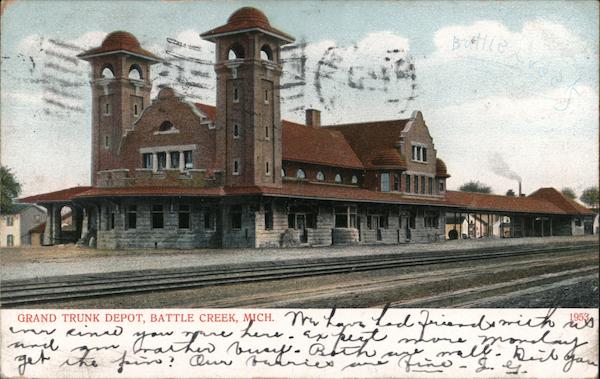 Battle
Creek
GRAND TRUNK DEPOT, BATTLE CREEK, MICH. 1953
We have had friends with us
ever since you were here.
and am rather busy. Expect more Monday
Both are well. Did you
get the pin? Our berries are fine. J. G.